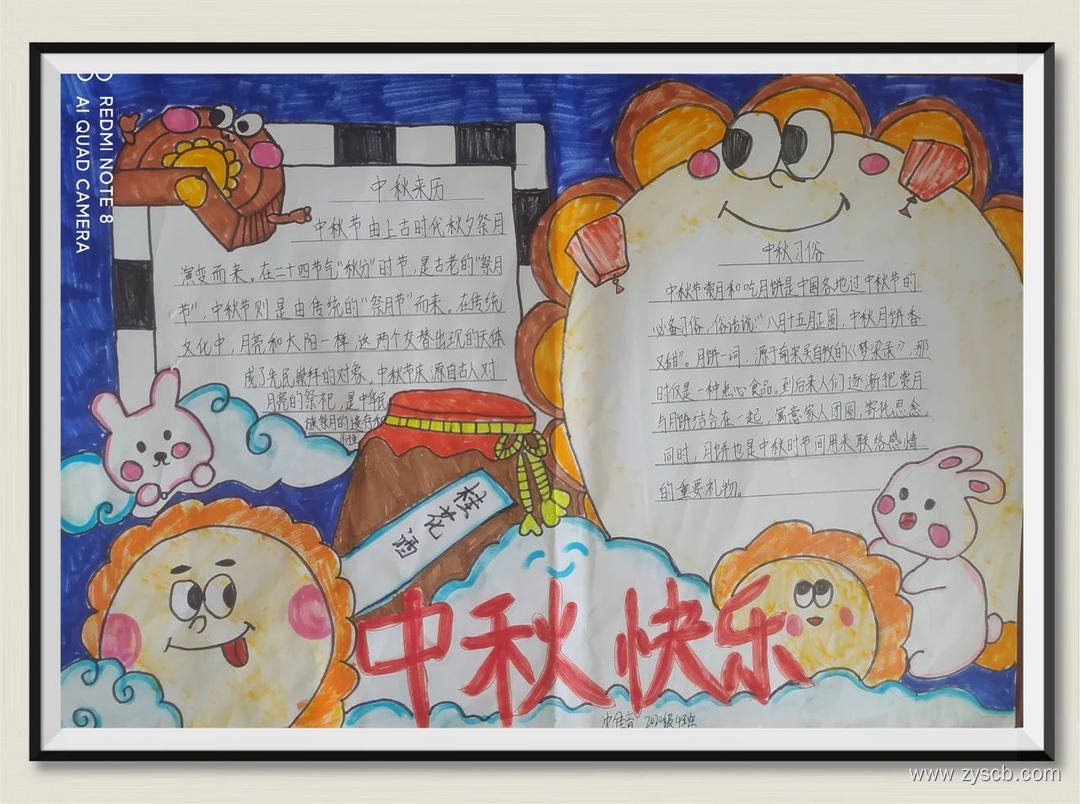 REDMI NOTE 8
AI QUAD CAMERA
中秋来历
中秋节由上古时代秋夕祭月
演变而来。在二十四节气“秋分”时节,是古老的“祭月
节”,中秋节则是由传统的“祭月节”而来。在传统
文化中,月亮和太阳一样,这两个交替出现的天体
成了先民崇拜的对象。中秋节庆源自古人对
月亮的祭祀,是中华民
族祭月的遗存和
中秋习俗
中秋节赏月和吃月饼是中国各地过中秋节的
必备习俗,俗话说:“八月十五月正圆,中秋月饼香
又甜”。月饼一词,源于南宋吴自牧的《梦梁录》,那
时仅是一种点心食品。到后来人们逐渐把赏月
与月饼结合在一起,寓意家人团圆,寄托思念。
同时,月饼也是中秋时节间用来联络感情
的重要礼物。
桂花酒
中秋快乐
2020级4班
www.zyscb.com